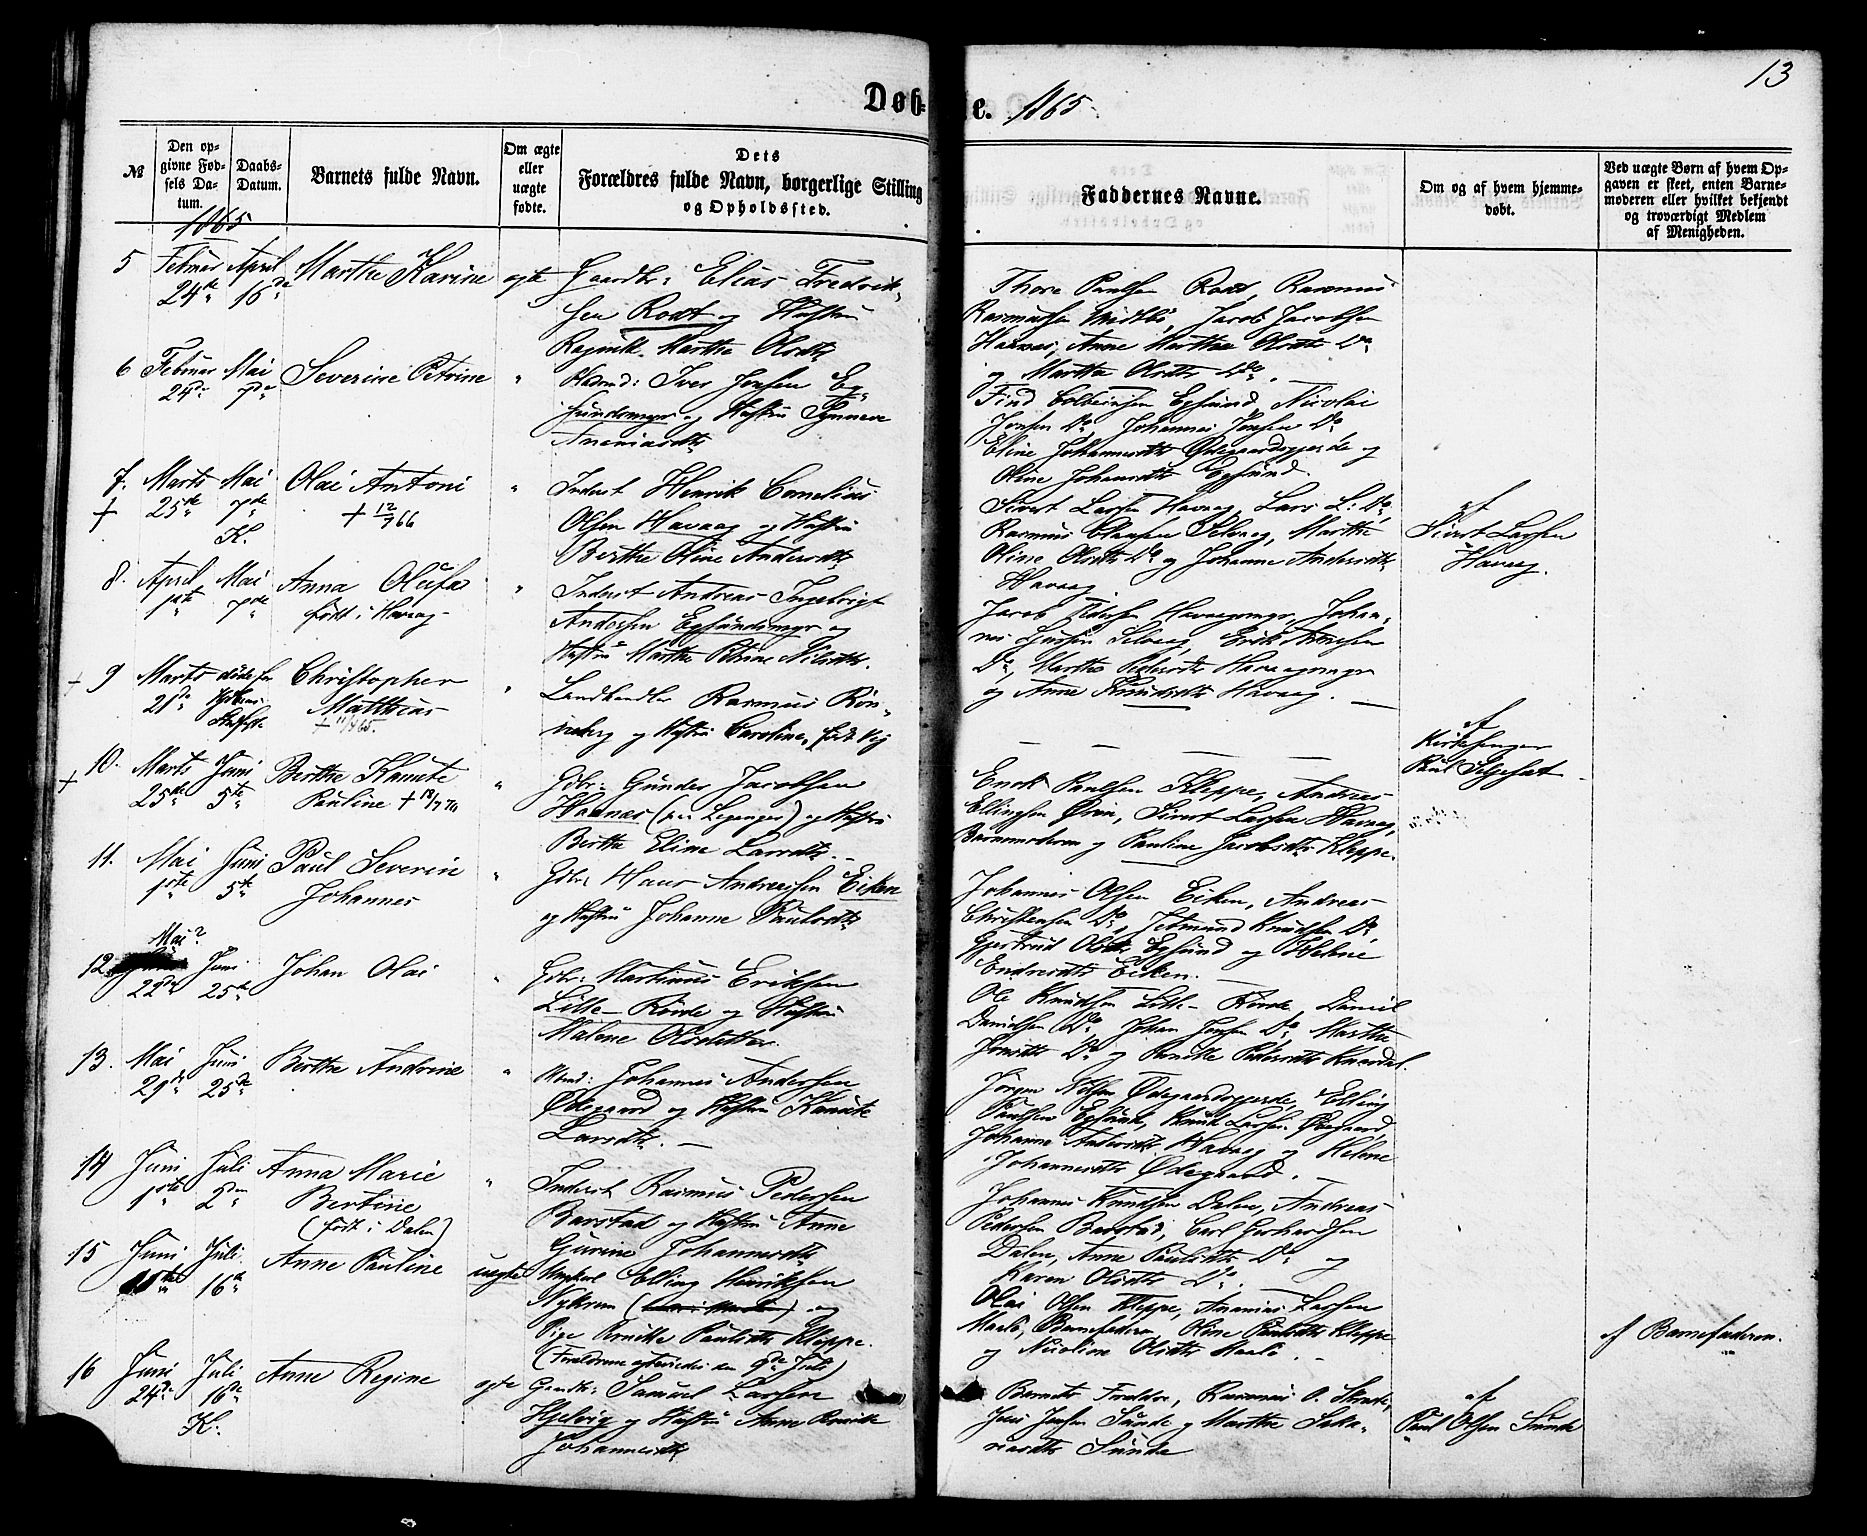 13
Døbte. 1865
№
Den opgivne Fødsels Datum.
Daabs-Datum.
Barnets fulde Navn.
Om ægte eller uægte fødte.
Dets Forældres fulde Navn, borgerlige Stilling og Opholdssted.
Faddernes Navne.
Om og af hvem hjemmedøbt.
Ved uægte Børn af hvem Opgaven er skeet, enten Barnemoderen eller hvilket bekjendt og troværdigt Medlem af Menigheden.
1865
5 Februar 24de April 16de Marthe Karine ægte
Gaardbr: Elias Fredrik-
sen Rodt og Hustru
Marthe Olsdtr
Thore Paulsen Rodt, Rasmus
Rasmussen Jacob Jacobsen
Haanæs, Anne Marthea Olsdtr Do
og Marthe Olsdtr Do.
6 Februar 24de Mai 7de Severine Petrine "
Iver Jensen Eg-
sundsmyr og Hustru Synneve
Ananiasdtr
Find Egsund, Nicolai
Jensen Do, Johannes Jensen Do
Eline Johannesdtr Ødegaardsgjerde og
Oline Johansdtr Egsund.
7. † Marts 25de Mai 7de K. Olai Antoni "
† 12/7 66
Inderst Henrik Cornelius
Olsen Havaag og Hustru
Berthe Oline Andersdtr
Sivert Larsen Havaag, Lars L: Do,
Rasmus Claussen Selvaag, Marthe
Oline Olsdtr Do og Johanne Andersdtr
Havaag
af
Sivert Larsen
Havaag.
8. April 1ste Mai 7de Anna Olufa "
født i Havaag
Inderst Andreas Ingebrigt
Andersen Egsundsmyr og
Hustru Marthe Petrine Nilsdtr.
Jacob Havaagsmyr, Johan-
nes Selvaag, Erik Arnesen
Do, Marthe Pedersdtr Havaagsmyr
og Anne Knudsdtr Havaag.
† 9 Marts 21de døde før Christopher "
Matthias
† 11/4 65.
Landhandler Rasmus Røn-
neberg og Hustru Caroline, født Vig
af
Kirkesanger
Paul
† 10. Marts 25de Juni 5te Berthe Knute "
Pauline † 18/7 70
Gdbr: Gunder Jacobsen
Haanæs og Hustru
Berthe Eline Larsdtr.
Enok Paulsen Kleppe, Andreas
Ellingsen Sivert Larsen Havaag,
Barnemoderen og Pauline Jacobsdtr Kleppe.
11. Mai 1ste Juni 5te Paul Severin "
Johannes
Gdbr: Hans Andreassen Eiken
og Hustru Johanne Paulsdtr
Johannes Olsen Eiken, Andreas
Christensen Do, Jetmund Knudsen Do
Gjertrud Olsdtr Egsund og Helene
Endresdtr Eiken.
12. Mai? 22de Juni 25de Johan Olai "
Gdbr: Martinus Eriksen
Lille-Røvde og Hustru
Malene Olsdatter.
Ole Knudsen Lille-Røvde, Daniel
Danielsen Do, Johan Jensen Do, Marthe
Jonsdtr Do og Pedersdtr
13. Mai 29de Juni 25de Berthe Andrine "
Johannes Andersen
Ødegaard og Hustru Knute
Larsdtr.
Jørgen Ødegaardsgjerde, Elling
Paulsen Egsund, Knud Larsen Ødegaard
Johanne Andersdtr Havaag og Helene
Johannesdtr Ødegaard.
14 Juni 1ste Juli 2den Anna Marie "
Bertine
(født i Dalen)
Inderst Rasmus Pedersen
Barstad og Hustru Anne
Gurine Johannesdtr
Johannes Knudsen Dalen, Andreas
Pedersen Barstad, Carl Gerhardsen
Dalen, Anne Paulsdtr Do og
Karen Olsdtr Do.
15 Juni Juli 16de Anne Pauline uægte
Ungkarl Elling Henriksen
og
Pige Paulsdtr Kleppe.
(Forældrene ægteviede den 9de Juli)
Olai Olsen Kleppe, Ananias Larsen
Barnefaderen, Oline Paulsdtr Kleppe
og Nicoline Olsdtr
af Barnefaderen.
16 Juni 24de Juli 16de K. Anne Regine ægte
Gaardbr: Samuel Larsen
og Hustru Anne
Johannesdtr
Barnets Forældre, Rasmus O. Sunde,
Jens Jensen Sunde og Marthe
Sunde
af
Paul Olsen Sunde